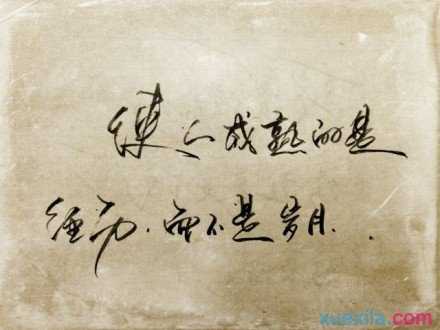 使人成熟的是
经历.而不是岁月.
xuexila.com